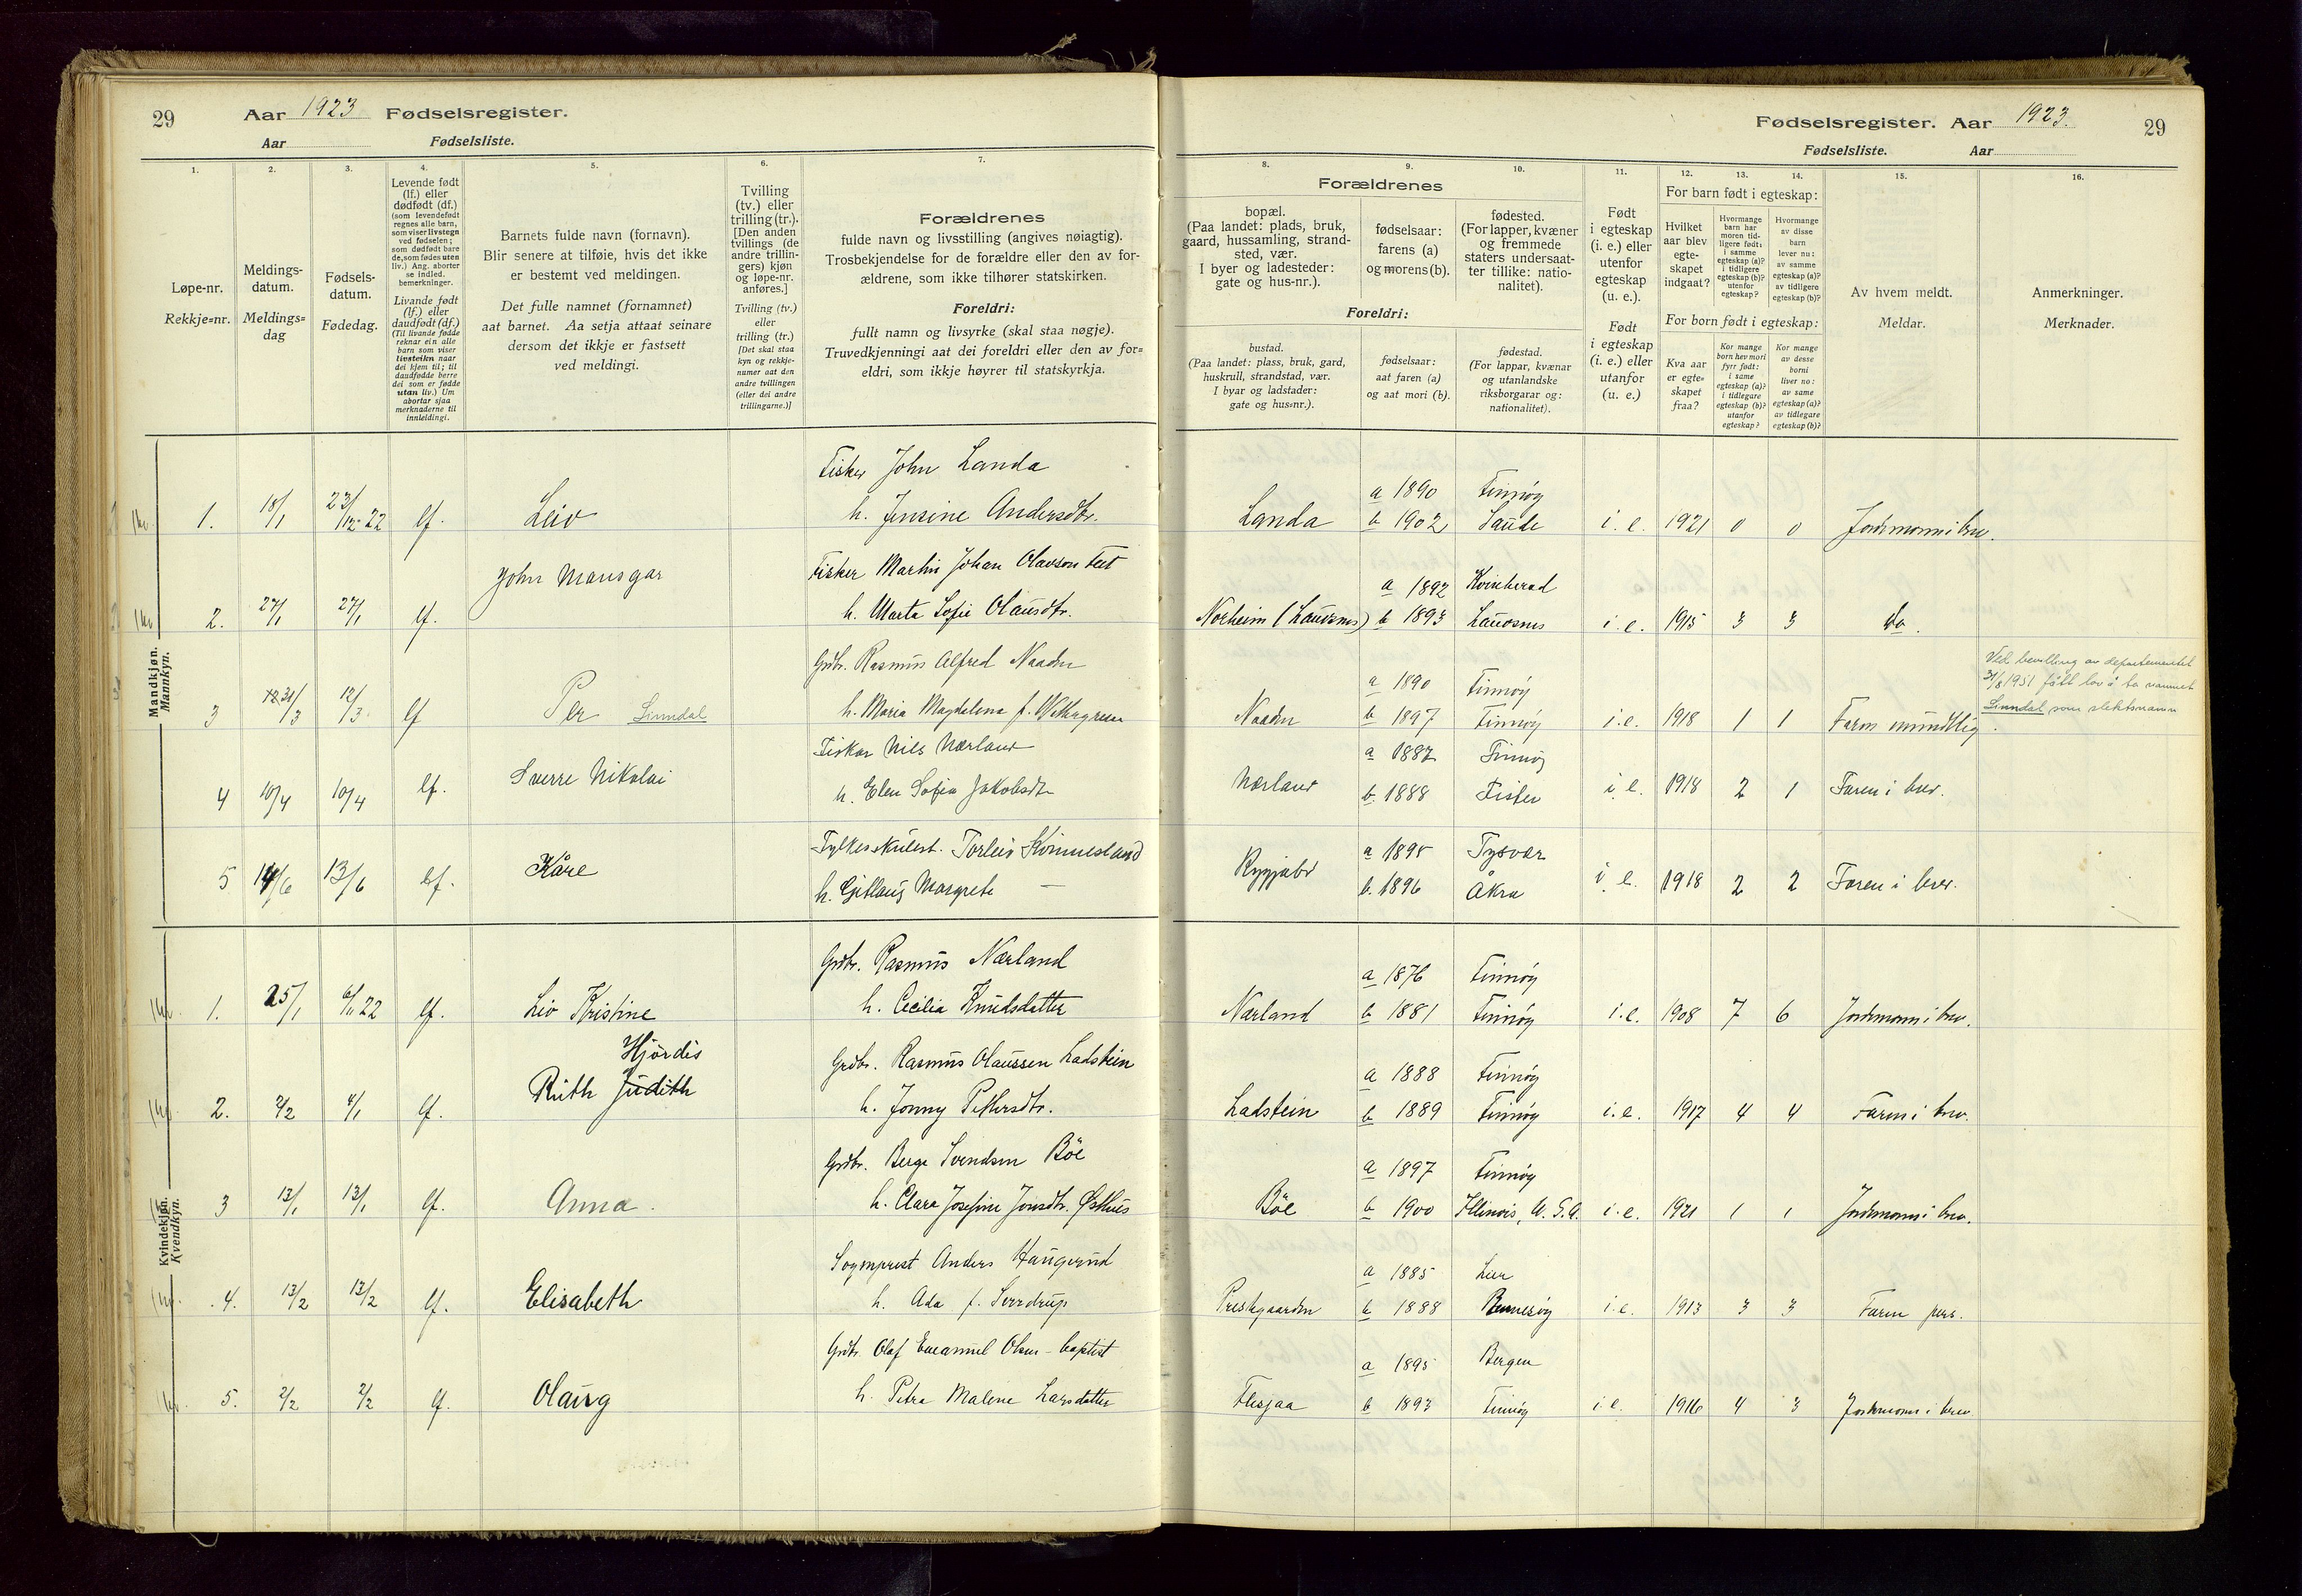 29
Aar 1923 Fødselsregister.
Aar Fødselsliste.
1.
2.
3.
4.
5.
6.
7.
Løpe-nr.
Rekkje=nr.
Meldings-
datum.
Meldings=
dag
Fødsels-
datum.
Fødedag.
Levende født
(lf.) eller
dødfødt (df.)
(som levendefødt
regnes alle barn,
som viser livstegn
ved fødselen;
som dødfødt bare
de, som fødes uten
liv.) Ang. aborter
se indled.
bemerkninger.
Livande født
(lf.) eller
daudfødt (df.)
(Til livande fødde
reknar ein alle
barn som viser
livsteikn naar
dei kjem til; til
daudfødde berre
dei som er fødde
utan liv.) Um
abortar sjaa
merknaderne til
innleidingi.
Barnets fulde navn (fornavn).
Blir senere at tilføie, hvis det ikke
er bestemt ved meldingen.
Det fulle namnet (fornamnet)
aat barnet. Aa setja attaat seinare
dersom det ikkje er fastsett
ved meldingi.
Tvilling
(tv.) eller
trilling (tr.).
[Den anden
tvillings (de
andre trillin-
gers) kjøn
og løpe-nr.
anføres.]
Tvilling (tv.)
eller
trilling (tr.)
[Det skal staa
kyn og rekkje-
numer aat den
andre tvillingen
(eller dei andre
trillingarne.)]
Forældrenes
fulde navn og livsstilling (angives nøiagtig).
Trosbekjendelse for de forældre eller den av for-
ældrene, som ikke tilhører statskirken.
Foreldri:
fullt namn og livsyrke (skal staa nøgje).
Truvedkjenningi aat dei foreldri eller den av for=
eldri, som ikkje høyrer til statskyrkja.
Mandkjøn.
Mannkyn.
Fisker John Landa
1. 18/1 23/12-22 lf. Leiv h. Jensine Andersdtr.
Fisker Martin Johan Olavson Feet
John Mansgar
2. 27/1 27/1 lf. h. Marta Sofie Olausdtr.
Grdbr. Rasmus Alfred Naaden
3 31/3 12/3 lf Per Linndal h. Maria Magdalena f.
Fiskar Nils Nærland
4 10/4 10/4 lf. Sverre Nikolai h. Elen Sofia Jakobsdtr
Fylkesskulest. Torleiv Kvinnesland
5 14/6 13/6 lf. Kåre h. Gjetlaug Margrete —
Kvindekjøn.
Kvendkyn.
Grdbr. Rasmus Nærland
1. 25/1 6/11 22 lf. Liv Kristine h. Cecilia Knudsdatter
Hjördis
Grdbr. Rasmus Olaussen Ladstein
Ruth Judith
2. 2/2 4/1 lf. h. Jonny Pettersdtr.
Grdbr. Berge Svendsen Böe
3 13/1 13/1 lf. Anna. h. Clara Josefine Jonsdtr. Østhus
Sogneprest Anders Haugerud
4. 13/2 13/2 lf. Elisabeth h. Ada f. Sverdrup
Grdbr. Olaf Emanuel Olsen - baptist
5. 2/2 2/2 lf. Olaug h. Petra Malene Larsdatter
Fødselsregister. Aar 1923.
29
Fødselsliste. Aar
8.
9.
10.
11.
12.
13.
14.
15.
16.
Forældrenes
bopæl.
(Paa landet: plads, bruk,
gaard, hussamling, strand-
sted, vær.
I byer og ladesteder:
gate og hus-nr.).
fødselsaar:
farens (a)
og morens (b).
fødested.
(For lapper, kvæner
og fremmede
staters undersaat-
ter tillike: natio-
nalitet).
Foreldri:
bustad.
(Paa landet: plass, bruk, gard,
huskrull, strandstad, vær.
I byar og ladstader:
gate og hus=nr.).
fødselsaar:
aat faren (a)
og aat mori (b).
fødestad.
(For lappar, kvænar
og utanlandske
riksborgarar og:
nationalitet).
Født
i egteskap
(i. e.) eller
utenfor
egteskap
(u. e.).
Født
i egteskap
(i. e.) eller
utanfor
(u. e.)
For barn født i egteskap:
Hvilket
aar blev
egte-
skapet
indgaat?
Hvormange
barn har
moren tid-
ligere født:
i samme
egteskap (a)?
i tidligere
egteskap (b)?
utenfor
egteskap?
Hvormange
av disse
barn
lever nu:
av samme
egteskap (a)?
av tidligere
egteskap (b)?
For born født i egteskap:
Kva aar
er egte=
skapet
fraa?
Kor mange
born hev mori
fyrr født:
i same
egteskap (a)?
i tidlegare
egteskap (b)?
utanfor
egteskap?
Kor mange
av desse
borni
liver no:
av same
egteskap (a)?
av tidlegare
egteskap (b)?
Av hvem meldt.
Meldar.
Anmerkninger.
Merknader.
a 1890 Finnöy
Landa b 1902 Saude i. e. 1921 0 0 Jordmoren i brev.
a 1892 Kvinherad
Norheim (Lauvsnes) b 1893 Lauvsnes i. e. 1915 3 3 do.
Ved bevilling av departementet
31/8 1951 fått lov å ta namnet
Linndal som slektsnamn
a 1890 Finnöy
Naaden b 1897 Finnöy i. e. 1918 1 1 Faren mundtlig.
a 1887 Finnöy
Nærland b. 1888 Fister i. e. 1918 2 1 Faren i brev.
a 1895 Tysvær
b. 1896 Åkra i. e. 1918 2 2 Faren i brev.
a 1876 Finnöy
Nærland b 1881 Finnöy i. e. 1908 7 6 Jordmoren i brev.
a 1888 Finnöy
Ladstein b 1889 Finnöy i. e. 1917 4 4 Faren i brev.
a 1897 Finnöy
Böe b 1900 Illinois, U. S. A. i. e. 1921 1 1 Jordmoren i brev.
a 1885 Lier
Prestgaarden b 1888 Rennesöy i. e. 1913 3 3 Faren pers.
a 1895 Bergen
Flesjaa b 1893 Finnöy i. e. 1916 4 3 Jordmoren i brev.